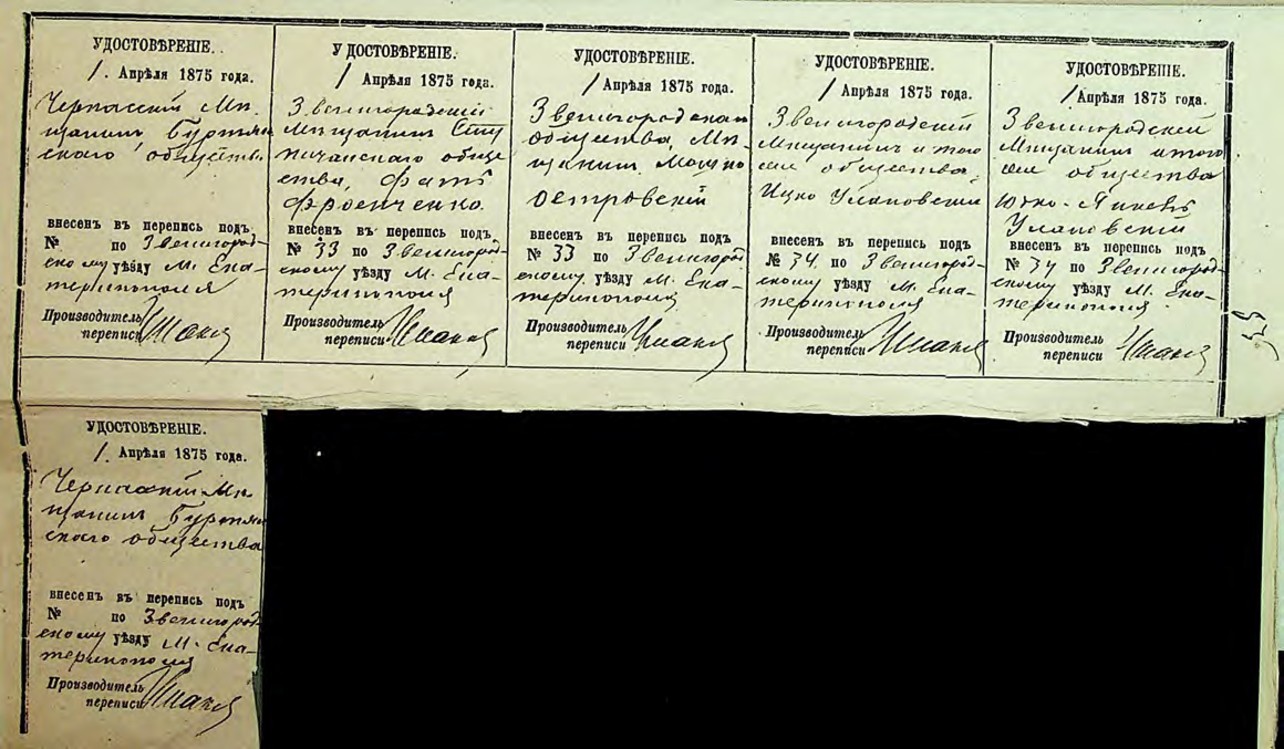 УДОСТОВѢРЕНІЕ.
1. Апрѣля 1875 года.
Черкасскій Мѣ-
щанинъ Буртян
скаго общества
внесенъ въ перепись подъ
№ по Звенигород-
скому уѣзду М. Ека-
теринополя
Производитель
переписи
УДОСТОВѢРЕНІЕ.
1 Апрѣля 1875 года.
Звенигородскій
Мѣщанинъ
общe
ства,
внесенъ въ перепись подъ
№ 33 по Звенигород-
скому уѣзду М. Ека-
теринополя
Производитель
переписи
УДОСТОВѢРЕНІЕ.
1 Апрѣля 1875 года.
Звенигородскаго
общества, Мѣ-
щанинъ Мошко
Островскій
внесенъ въ перепись подъ
№ 33 по Звенигород-
скому уѣзду М. Ека-
теринополя
Производитель
переписи
УДОСТОВѢРЕНІЕ.
1 Апрѣля 1875 года.
Звенигородскій
Мѣщанинъ и того
же общества,
Ицко Улановскій
внесенъ въ перепись подъ
№ 34 по Звенигород-
скому уѣзду М. Ека-
теринополя
Производитель
переписи
УДОСТОВѢРЕНІЕ.
1 Апрѣля 1875 года.
Звенигородскій
Мѣщанинъ и того
же общества
Улановскій
внесенъ въ перепись подъ
№ 34 по Звенигород-
скому уѣзду М. Ека-
теринополя.
Производитель
переписи
УДОСТОВѢРЕНІЕ.
1. Апрѣля 1875 года.
Черкасскій Мѣ-
щанинъ Буртян
скаго общества
внесенъ въ перепись подъ
№ по Звенигород-
скому уѣзду М. Ека-
теринополя
Производитель
переписи